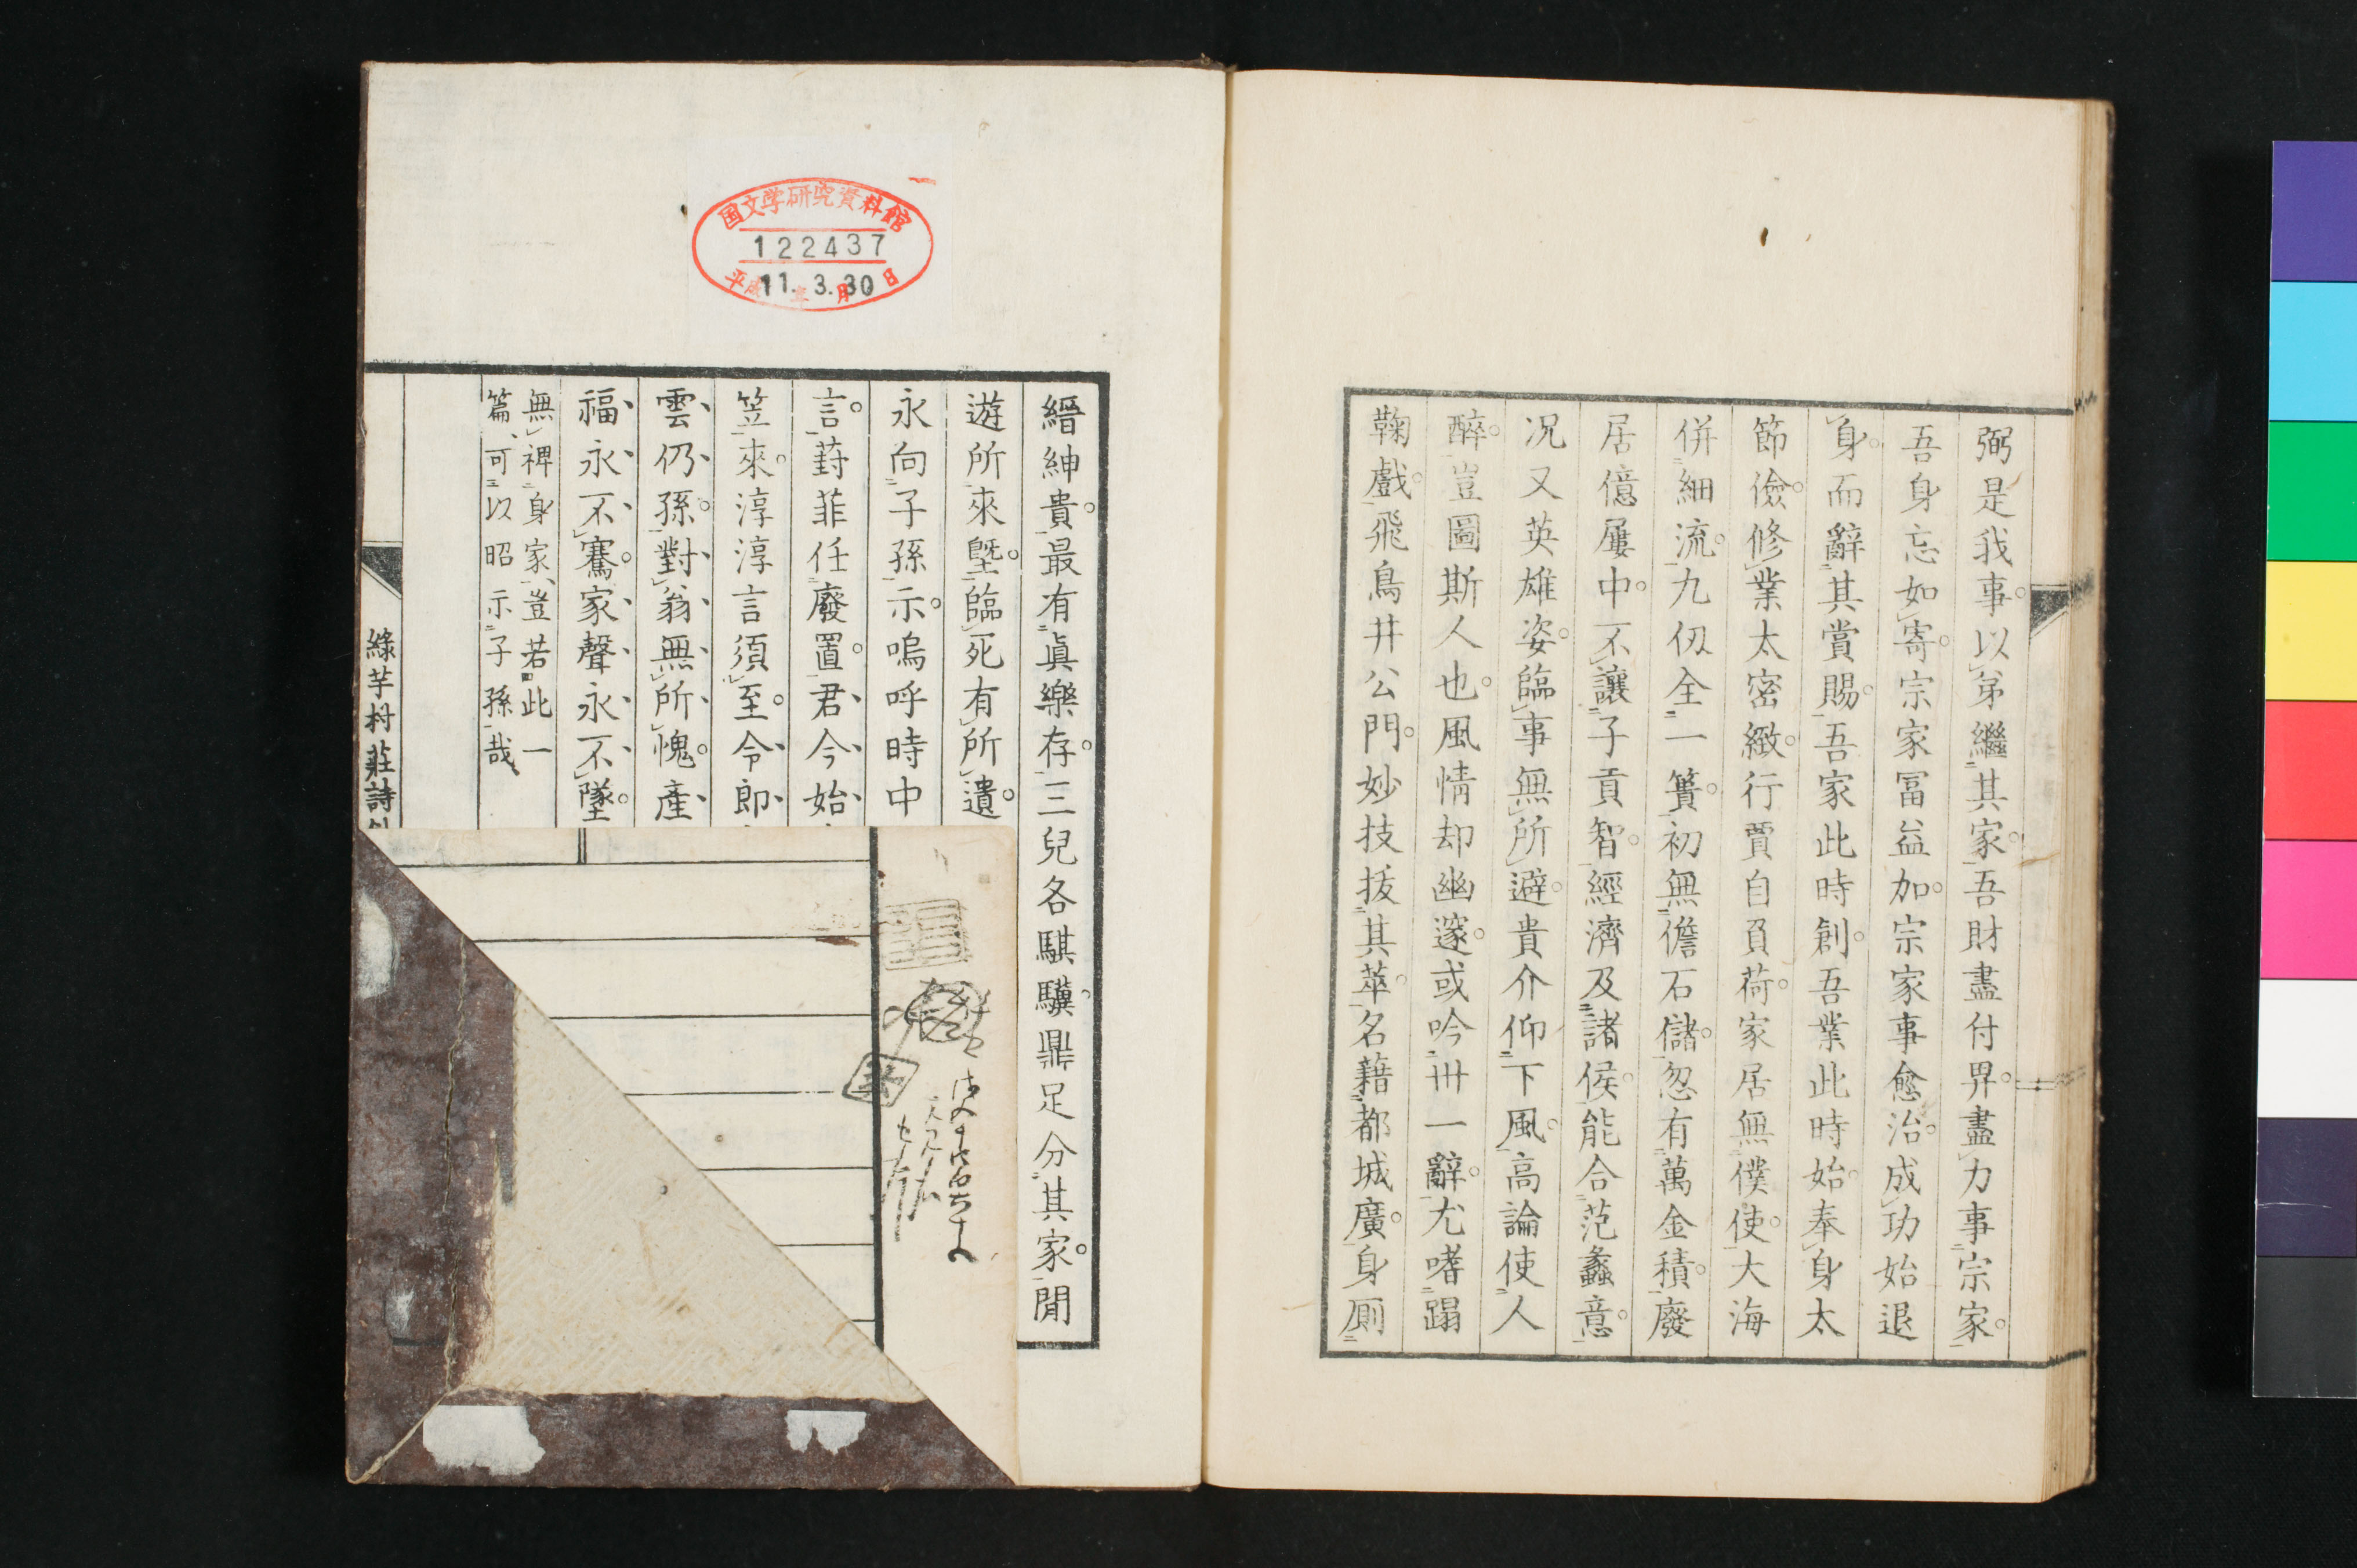 弼是我事以弟繼其家吾財盡付畀盡力事宗家
吾身忘如寄宗家冨益加宗家事愈治成功始退
身而辭其賞賜吾家此時創吾業此時始奉身太
節儉修業太密緻行賈自負荷家居無僕使大海
併細流九仭全一簣初無儋石儲忽有萬金積廢
居億屢中不讓子貢智經濟及諸侯能合范蠡意
况又英雄姿臨事無所避貴介仰下風高論使人
醉豈圖斯人也風情却幽邃或吟卅一辭尤嗜蹋
鞠戲飛鳥井公門妙技拔其萃名藉都城廣身厠
縉紳貴最有眞樂存三兒各騏驥鼎足分其家閒
遊所來塈臨死有所遺
永向子孫示嗚呼時中
言葑菲任廢置君今始
笠來淳淳言須至令郎
雲仍孫對翁無所愧產
福永不騫家聲永不墜
無裨身家豈若此一
篇可以昭示子孫哉
綠芋村莊詩
国文学研究資料館
122437
平成11.3.30
年月日